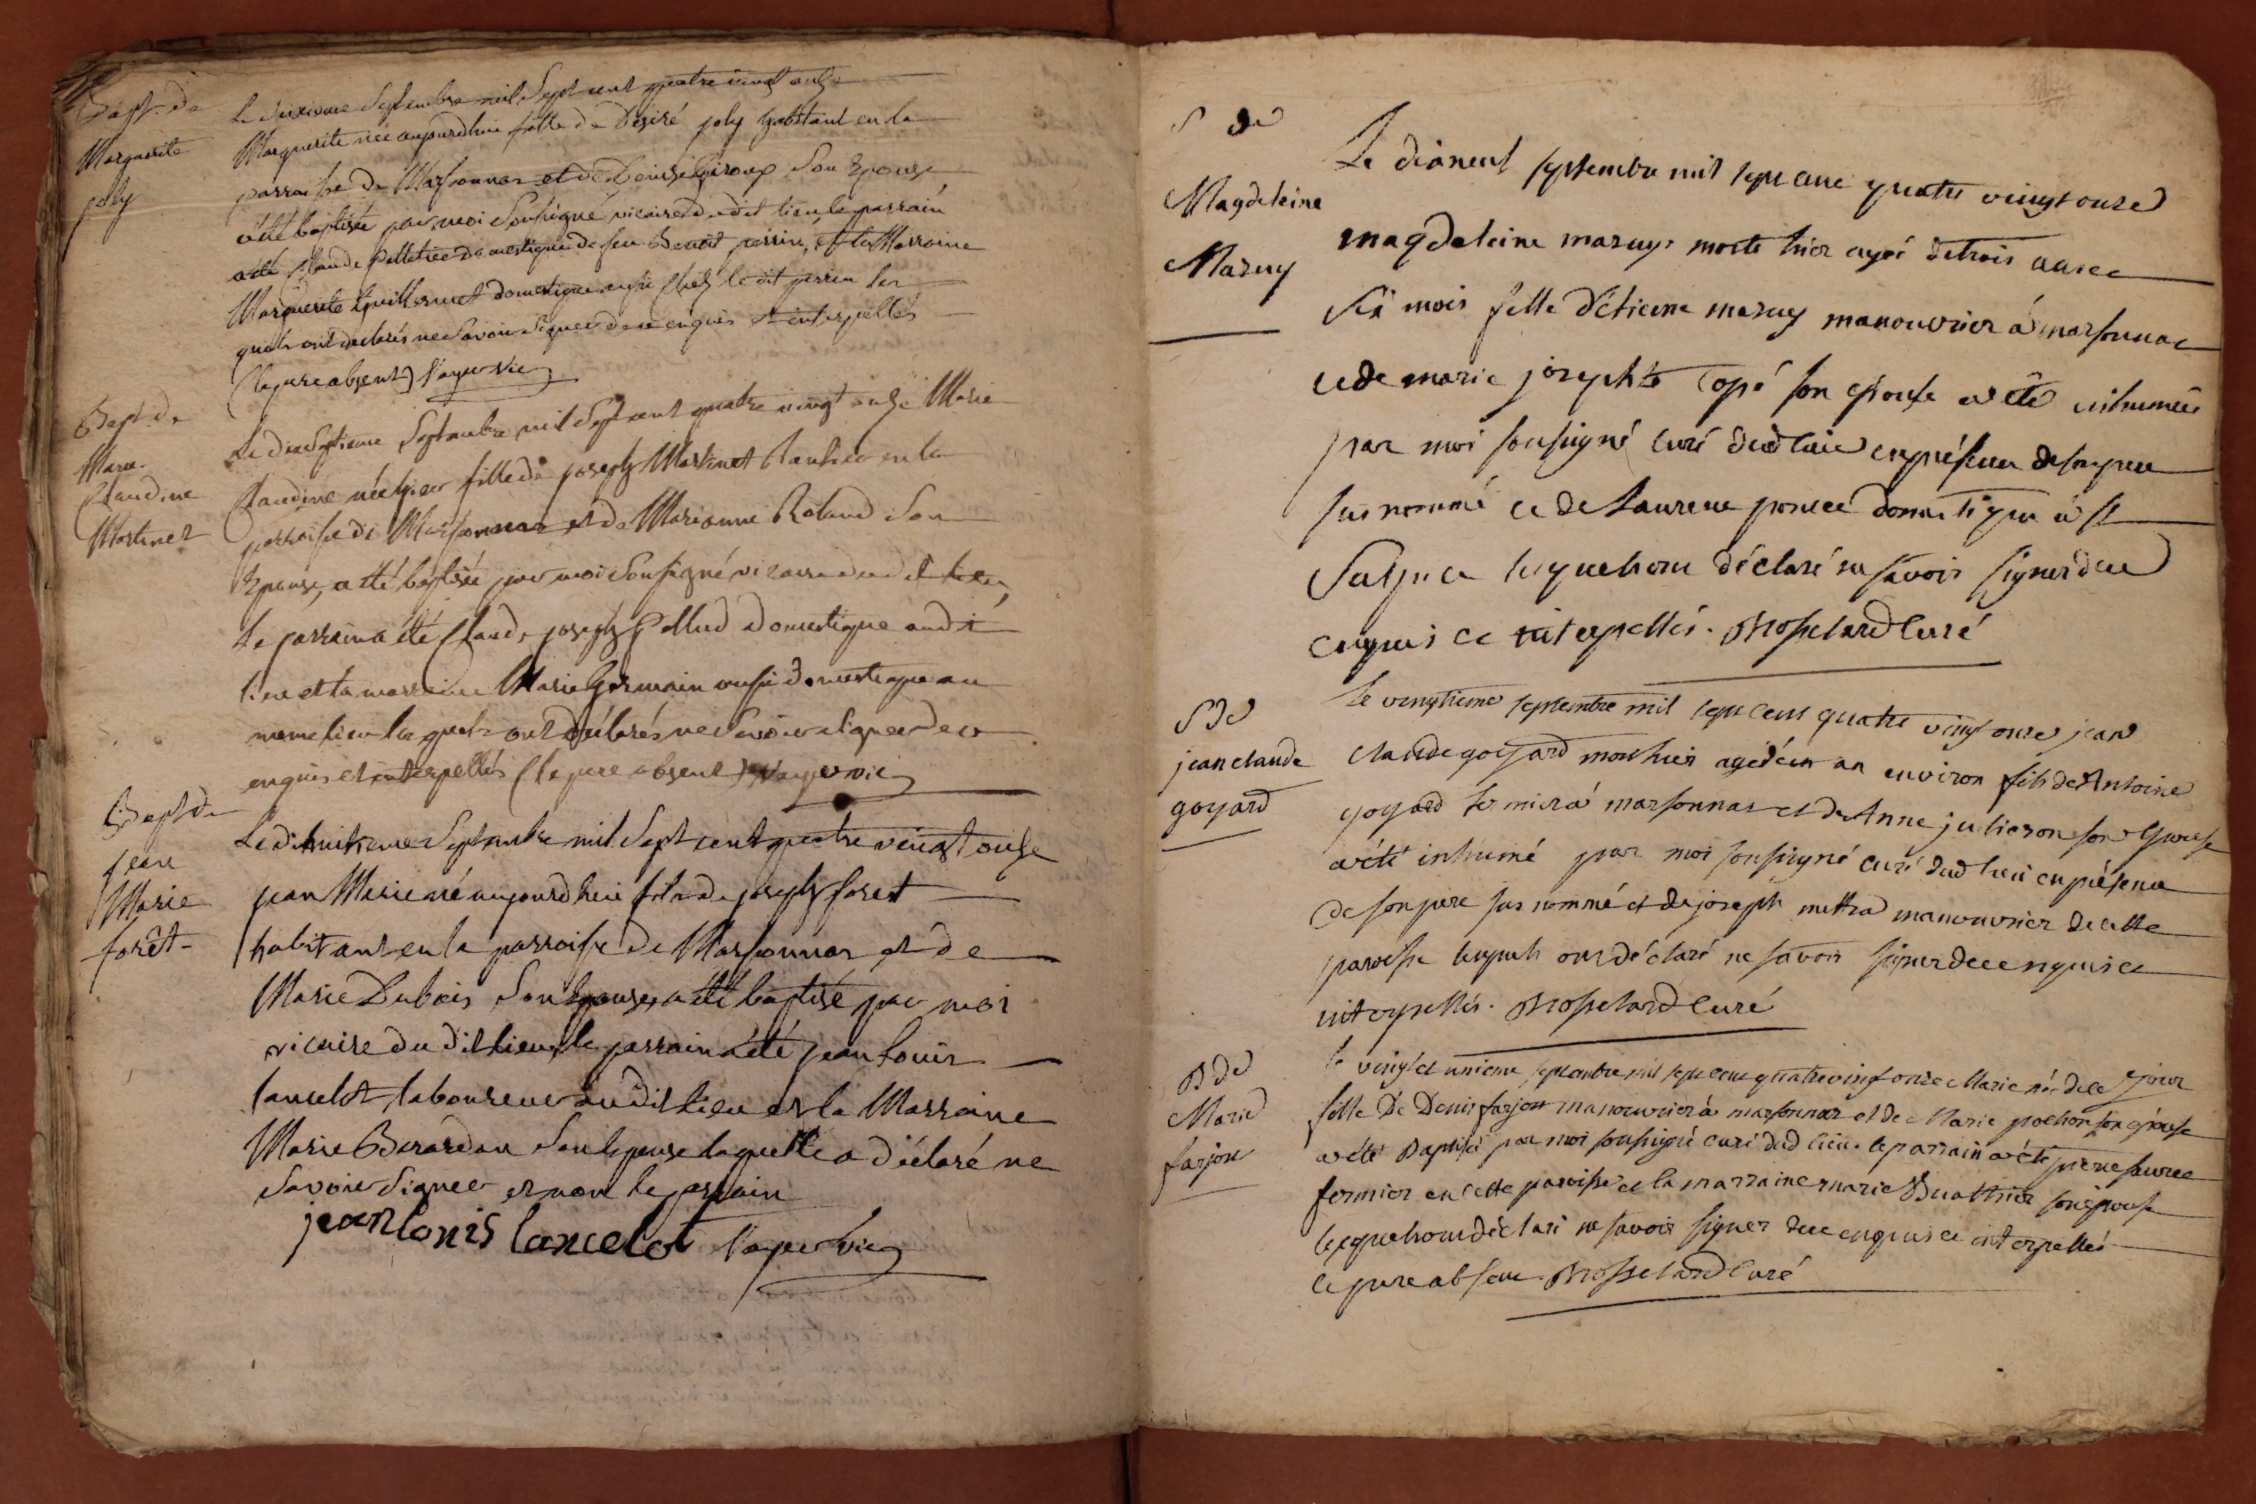 Bapt. de
Marguerite
joly
Le seizieme Septembre mil Sept cent quatre vingt onze
Marguerite née aujourdhui fille de Désiré joly habitant en la
parroisse de Marsonnas et de Denise Giroux Son Epouse
a été baptisée par moi Soussigné vicaire dudit lieu, le parrain
a été Claude Pelletier domestique de feu Benoit perrin, et la Marraine
Marguerite Guillermet domestique aussi chez le dit perrin les
quels ont declarés ne Savoir Signer de ce enquis et interpellés
(le pere absent)
Bapt. de
Marie
Claudine
Martinet
Le dixseptieme Septembre mil Sept cent quatre vingt onze Marie
Claudine née hier fille de joseph Martinet en la
parroisse de Marsonnas et de Marianne Roland Son
Epouse, a été baptisée par moi Soussigné vicaire dudit lieu,
le parrain a été Claude joseph Pellud domestique audit
lieu et la marraine Marie Germain aussi domestique au
meme lieu les quels ont déclarés ne Savoir signer de ce
enquis et interpellés (le pere absent)
Bapt de
jean
Marie
forêt
Le dixhuitieme Septembre mil Sept cent quatre vingt onze
jean Marie né aujourdhui fils de joseph foret
habitant en la parroisse de Marsonnas et de
Marie Dubois Son Epouse, a été baptisé par moi
vicaire du dit lieu, le parrain a été jean Louis
lancelot, laboureur audit lieu et la Marraine
Marie Berardan Son Epouse laquelle a déclaré ne
Savoir Signer et non le parrain
jean louis lancelot
S de
Magdeleine
Mazuy
Le dixneuf septembre mil sept cent quatre vingt onze
magdeleine mazuy morte hier agée de trois ans et
six mois fille d'étienne mazuy manouvrier à marsonnas
et de marie josephte Copé son épouse a été inhumée
par moi soussigné curé dud lieu en présence de son pere
sus nommé et de Laurent poncet domestique à st
Sulpice lesquels ont déclaré ne savoir signer de ce
enquis et interpellés. Mosselard Curé
S de
jean claude
goyard
le vingtieme septembre mil sept cent quatre vingt onze jean
claude goyard mort hier agé d'un an environ fils de Antoine
goyard fermier à marsonnas et de Anne julieron son Epouse
a été inhumé par moi soussigné curé dud lieu en présence
de son pere sus nommé et de joseph mettra manouvrier de cette
paroisse lesquels ont déclaré ne savoir signer de ce enquis et
interpellés. Mosselard Curé
B de
Marie
farjon
le vingt et unieme septembre mil sept cent quatre vingt onze Marie née de ce jour
fille de Denis farjon manouvrier à marsonnas et de Marie pochon son épouse
a été Baptisé par moi soussigné curé dud lieu. le parrain a été pierre
fermier en cette paroisse et la marraine marie Buathier son épouse
lesquels ont déclaré ne savoir signer de ce enquis et interpellés
le pere absent. Mosselard Curé